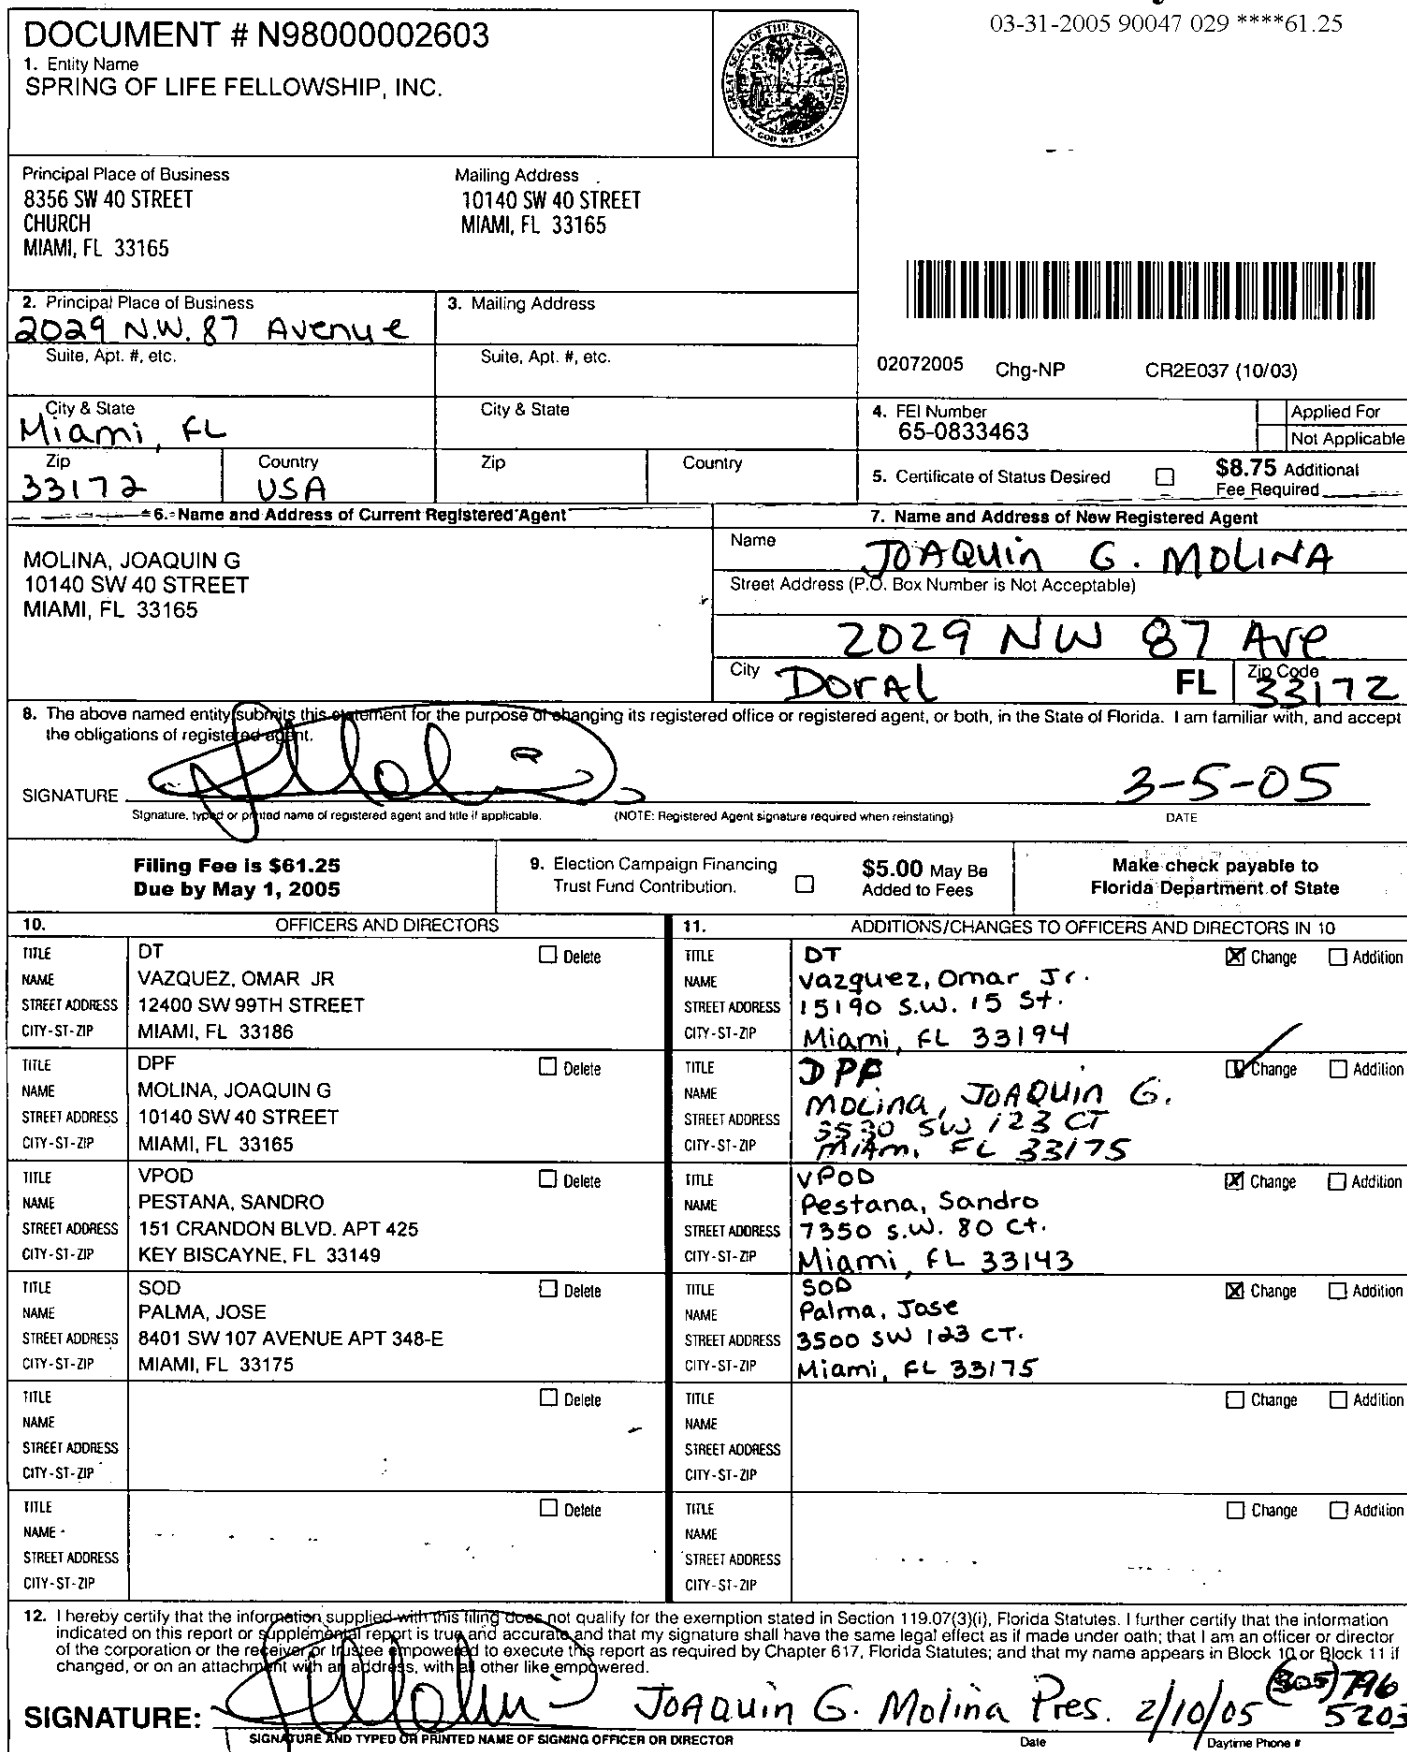 03-31-2005 90047 029 ****61.25
DOCUMENT # N98000002603
1. Entity Name
SPRING OF LIFE FELLOWSHIP, INC.
GREAT SEAL OF THE STATE OF FLORIDA
IN GOD WE TRUST
Principal Place of Business
8356 SW 40 STREET
CHURCH
MIAMI, FL 33165
Mailing Address
10140 SW 40 STREET
MIAMI, FL 33165
2. Principal Place of Business
2029 N.W. 87 Avenue
Suite, Apt. #, etc.
City & State
Miami, FL
Zip
33172
Country
USA
3. Mailing Address
Suite, Apt. #, etc.
City & State
Zip
Country
02072005 Chg-NP CR2E037 (10/03)
4. FEI Number
65-0833463
Applied For
Not Applicable
5. Certificate of Status Desired
$8.75 Additional
Fee Required
6. Name and Address of Current Registered Agent
MOLINA, JOAQUIN G
10140 SW 40 STREET
MIAMI, FL 33165
7. Name and Address of New Registered Agent
Name
JOAQUIN G. MOLINA
Street Address (P.O. Box Number is Not Acceptable)
2029 NW 87 Ave
City Doral FL Zip Code 33172
8. The above named entity submits this statement for the purpose of changing its registered office or registered agent, or both, in the State of Florida. I am familiar with, and accept
the obligations of registered agent.
SIGNATURE
3-5-05
Signature, typed or printed name of registered agent and title if applicable. (NOTE: Registered Agent signature required when reinstating) DATE
Filing Fee is $61.25
Due by May 1, 2005
9. Election Campaign Financing
Trust Fund Contribution.
$5.00 May Be
Added to Fees
Make check payable to
Florida Department of State
10. OFFICERS AND DIRECTORS
TITLE DT Delete
NAME VAZQUEZ, OMAR JR
STREET ADDRESS 12400 SW 99TH STREET
CITY-ST-ZIP MIAMI, FL 33186
TITLE DPF Delete
NAME MOLINA, JOAQUIN G
STREET ADDRESS 10140 SW 40 STREET
CITY-ST-ZIP MIAMI, FL 33165
TITLE VPOD Delete
NAME PESTANA, SANDRO
STREET ADDRESS 151 CRANDON BLVD. APT 425
CITY-ST-ZIP KEY BISCAYNE, FL 33149
TITLE SOD Delete
NAME PALMA, JOSE
STREET ADDRESS 8401 SW 107 AVENUE APT 348-E
CITY-ST-ZIP MIAMI, FL 33175
TITLE Delete
NAME
STREET ADDRESS
CITY-ST-ZIP
TITLE Delete
NAME
STREET ADDRESS
CITY-ST-ZIP
11. ADDITIONS/CHANGES TO OFFICERS AND DIRECTORS IN 10
TITLE DT Change Addition
NAME Vazquez, Omar Jr.
STREET ADDRESS 15190 S.W. 15 St.
CITY-ST-ZIP Miami, FL 33194
TITLE DPF Change Addition
NAME Molina, JOAQUIN G.
STREET ADDRESS 3530 SW 123 CT
CITY-ST-ZIP Miami, FL 33175
TITLE VPOD Change Addition
NAME Pestana, Sandro
STREET ADDRESS 7350 S.W. 80 Ct.
CITY-ST-ZIP Miami, FL 33143
TITLE SOD Change Addition
NAME Palma, Jose
STREET ADDRESS 3500 SW 123 CT.
CITY-ST-ZIP Miami, FL 33175
TITLE Change Addition
NAME
STREET ADDRESS
CITY-ST-ZIP
TITLE Change Addition
NAME
STREET ADDRESS
CITY-ST-ZIP
12. I hereby certify that the information supplied with this filing does not qualify for the exemption stated in Section 119.07(3)(i), Florida Statutes. I further certify that the information
indicated on this report or supplemental report is true and accurate and that my signature shall have the same legal effect as if made under oath; that I am an officer or director
of the corporation or the receiver or trustee empowered to execute this report as required by Chapter 617, Florida Statutes; and that my name appears in Block 10 or Block 11 if
changed, or on an attachment with an address, with all other like empowered.
SIGNATURE: JOAQUIN G. Molina Pres. 2/10/05 (305) 796
5203
SIGNATURE AND TYPED OR PRINTED NAME OF SIGNING OFFICER OR DIRECTOR Date Daytime Phone #